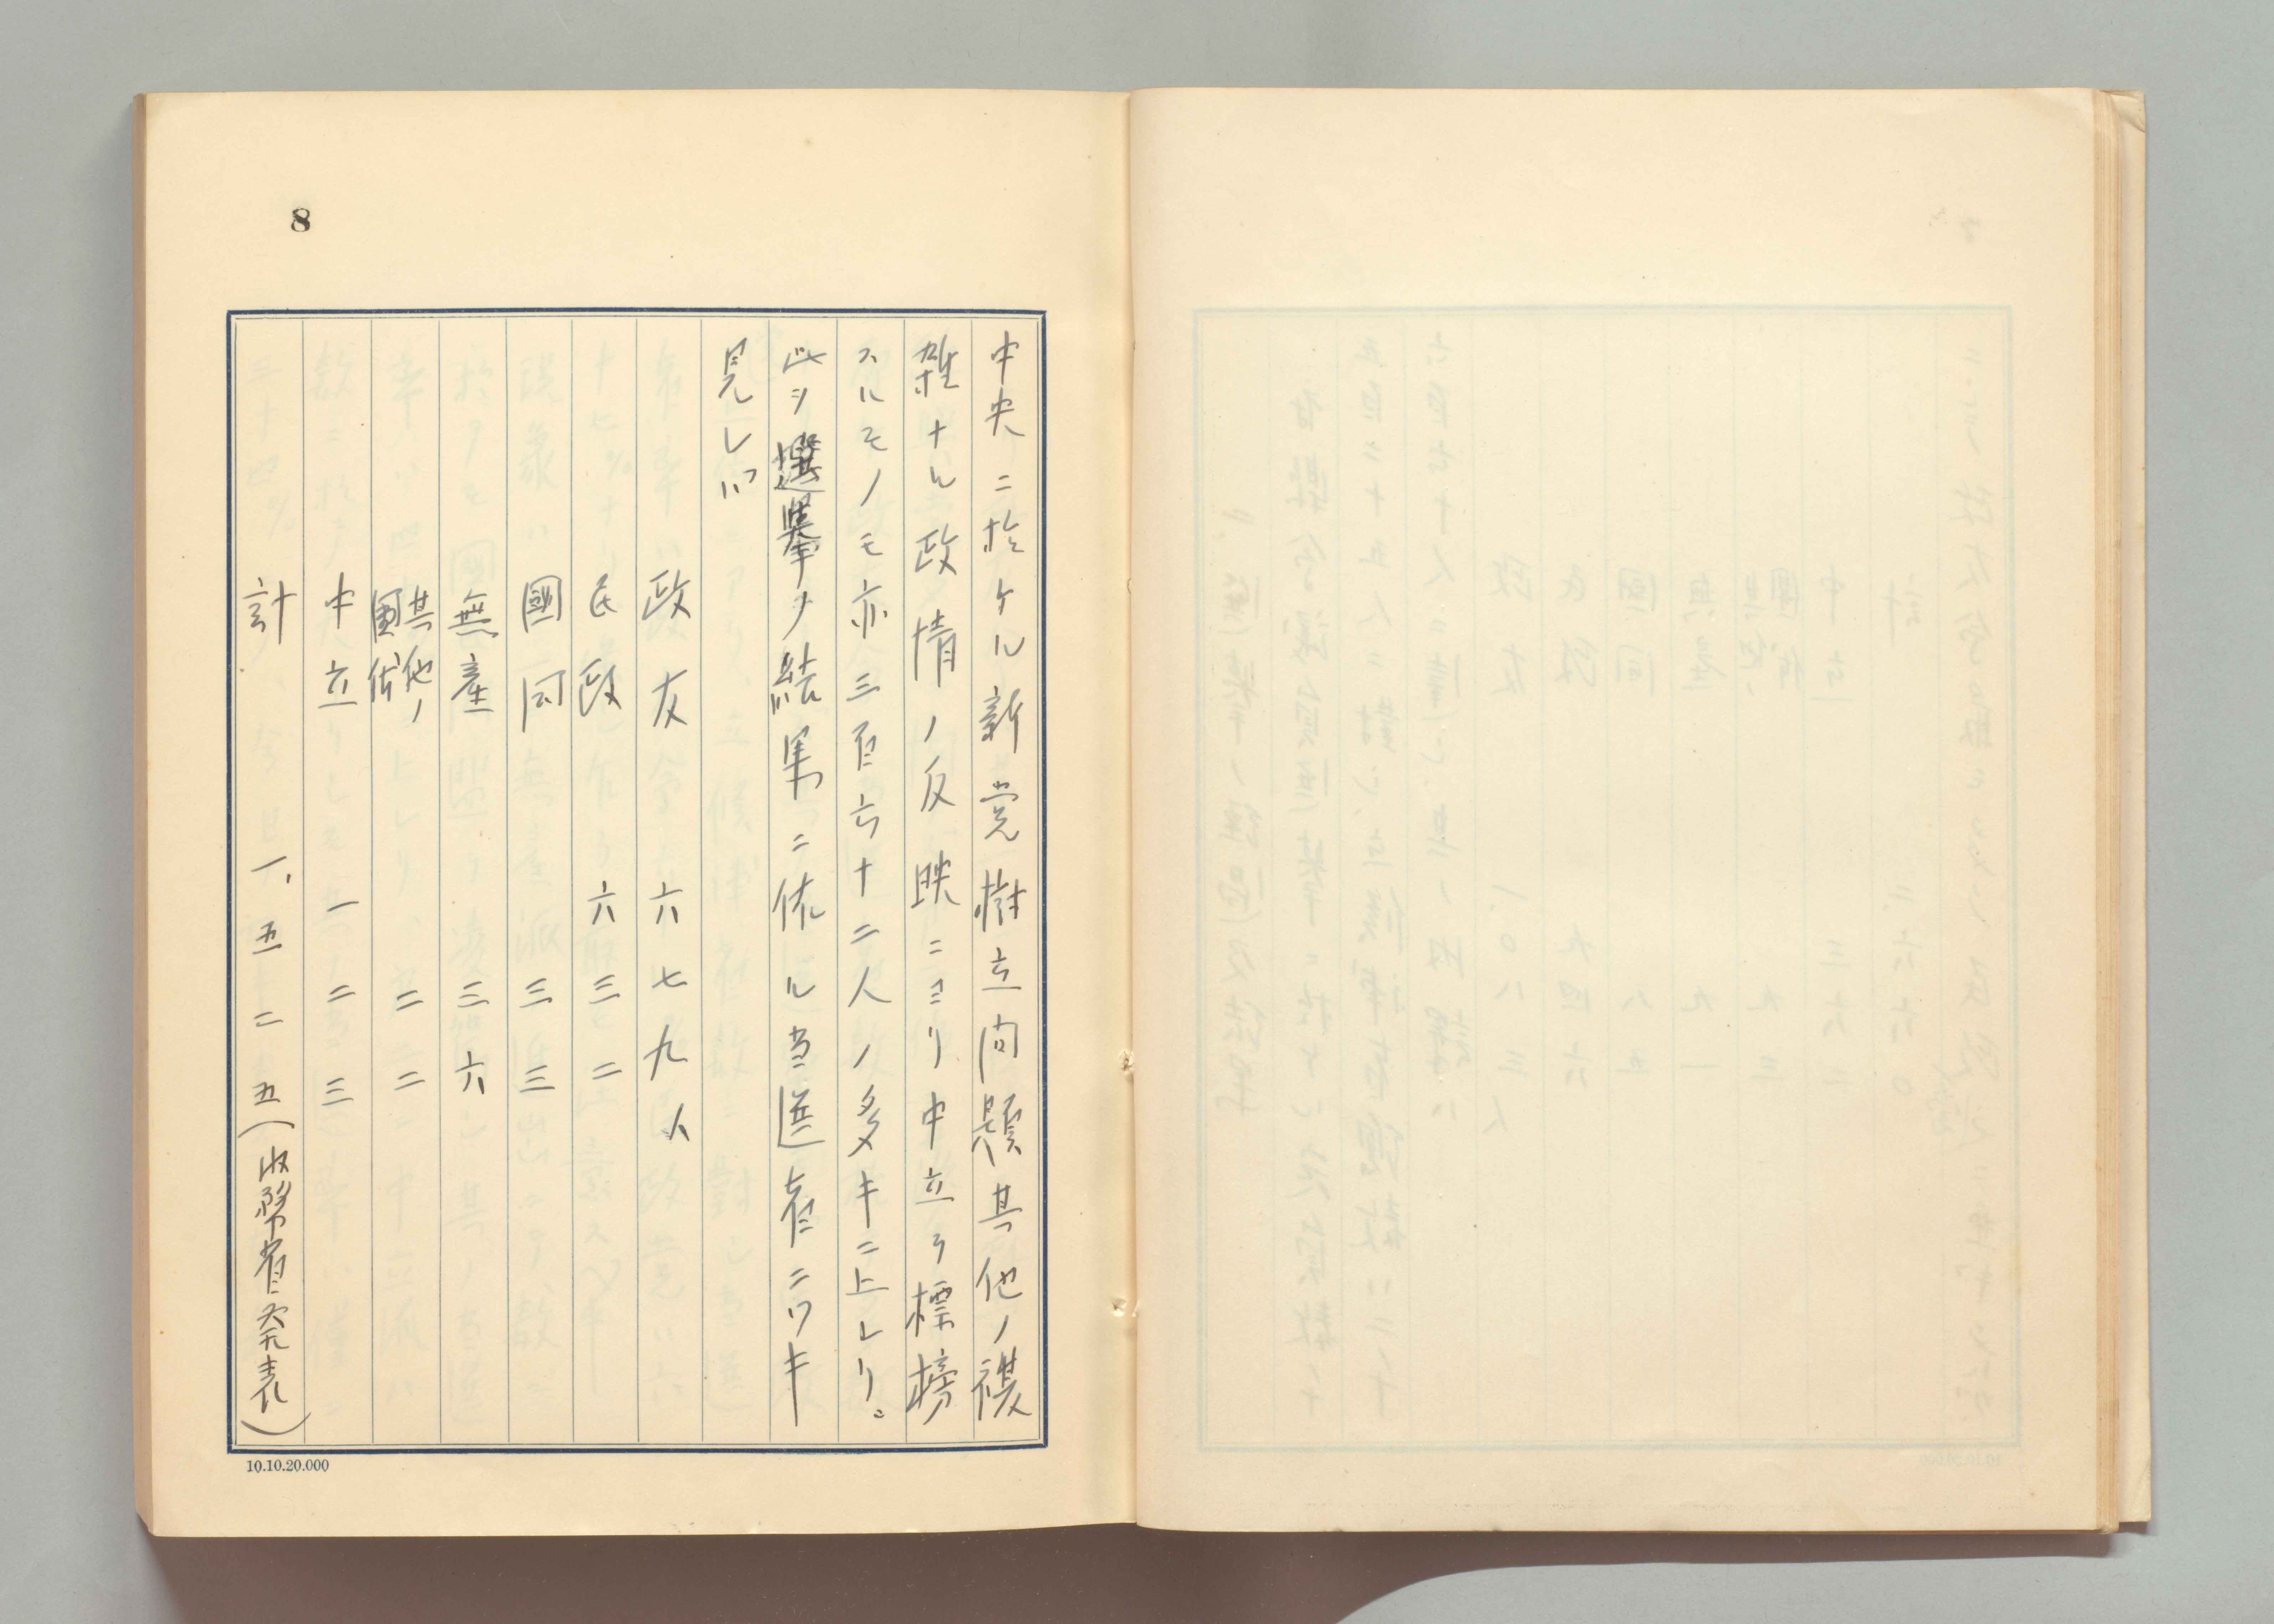 8
中央ニ於ケル新党樹立問題其他ノ複
雑ナル政情ノ反映ニヨリ中立ヲ標榜
スルモノモ亦三百六十二人ノ多キニ上レリ。
此ヲ選挙ノ結果ニ依ル当選者ニツキ
見レバ
政友 六七九人
民政 六三二
國同 三三
無産 三六
其他ノ團体 二二
中立 一二三
計 一、五二五(内務省発表)
10.10.20.000